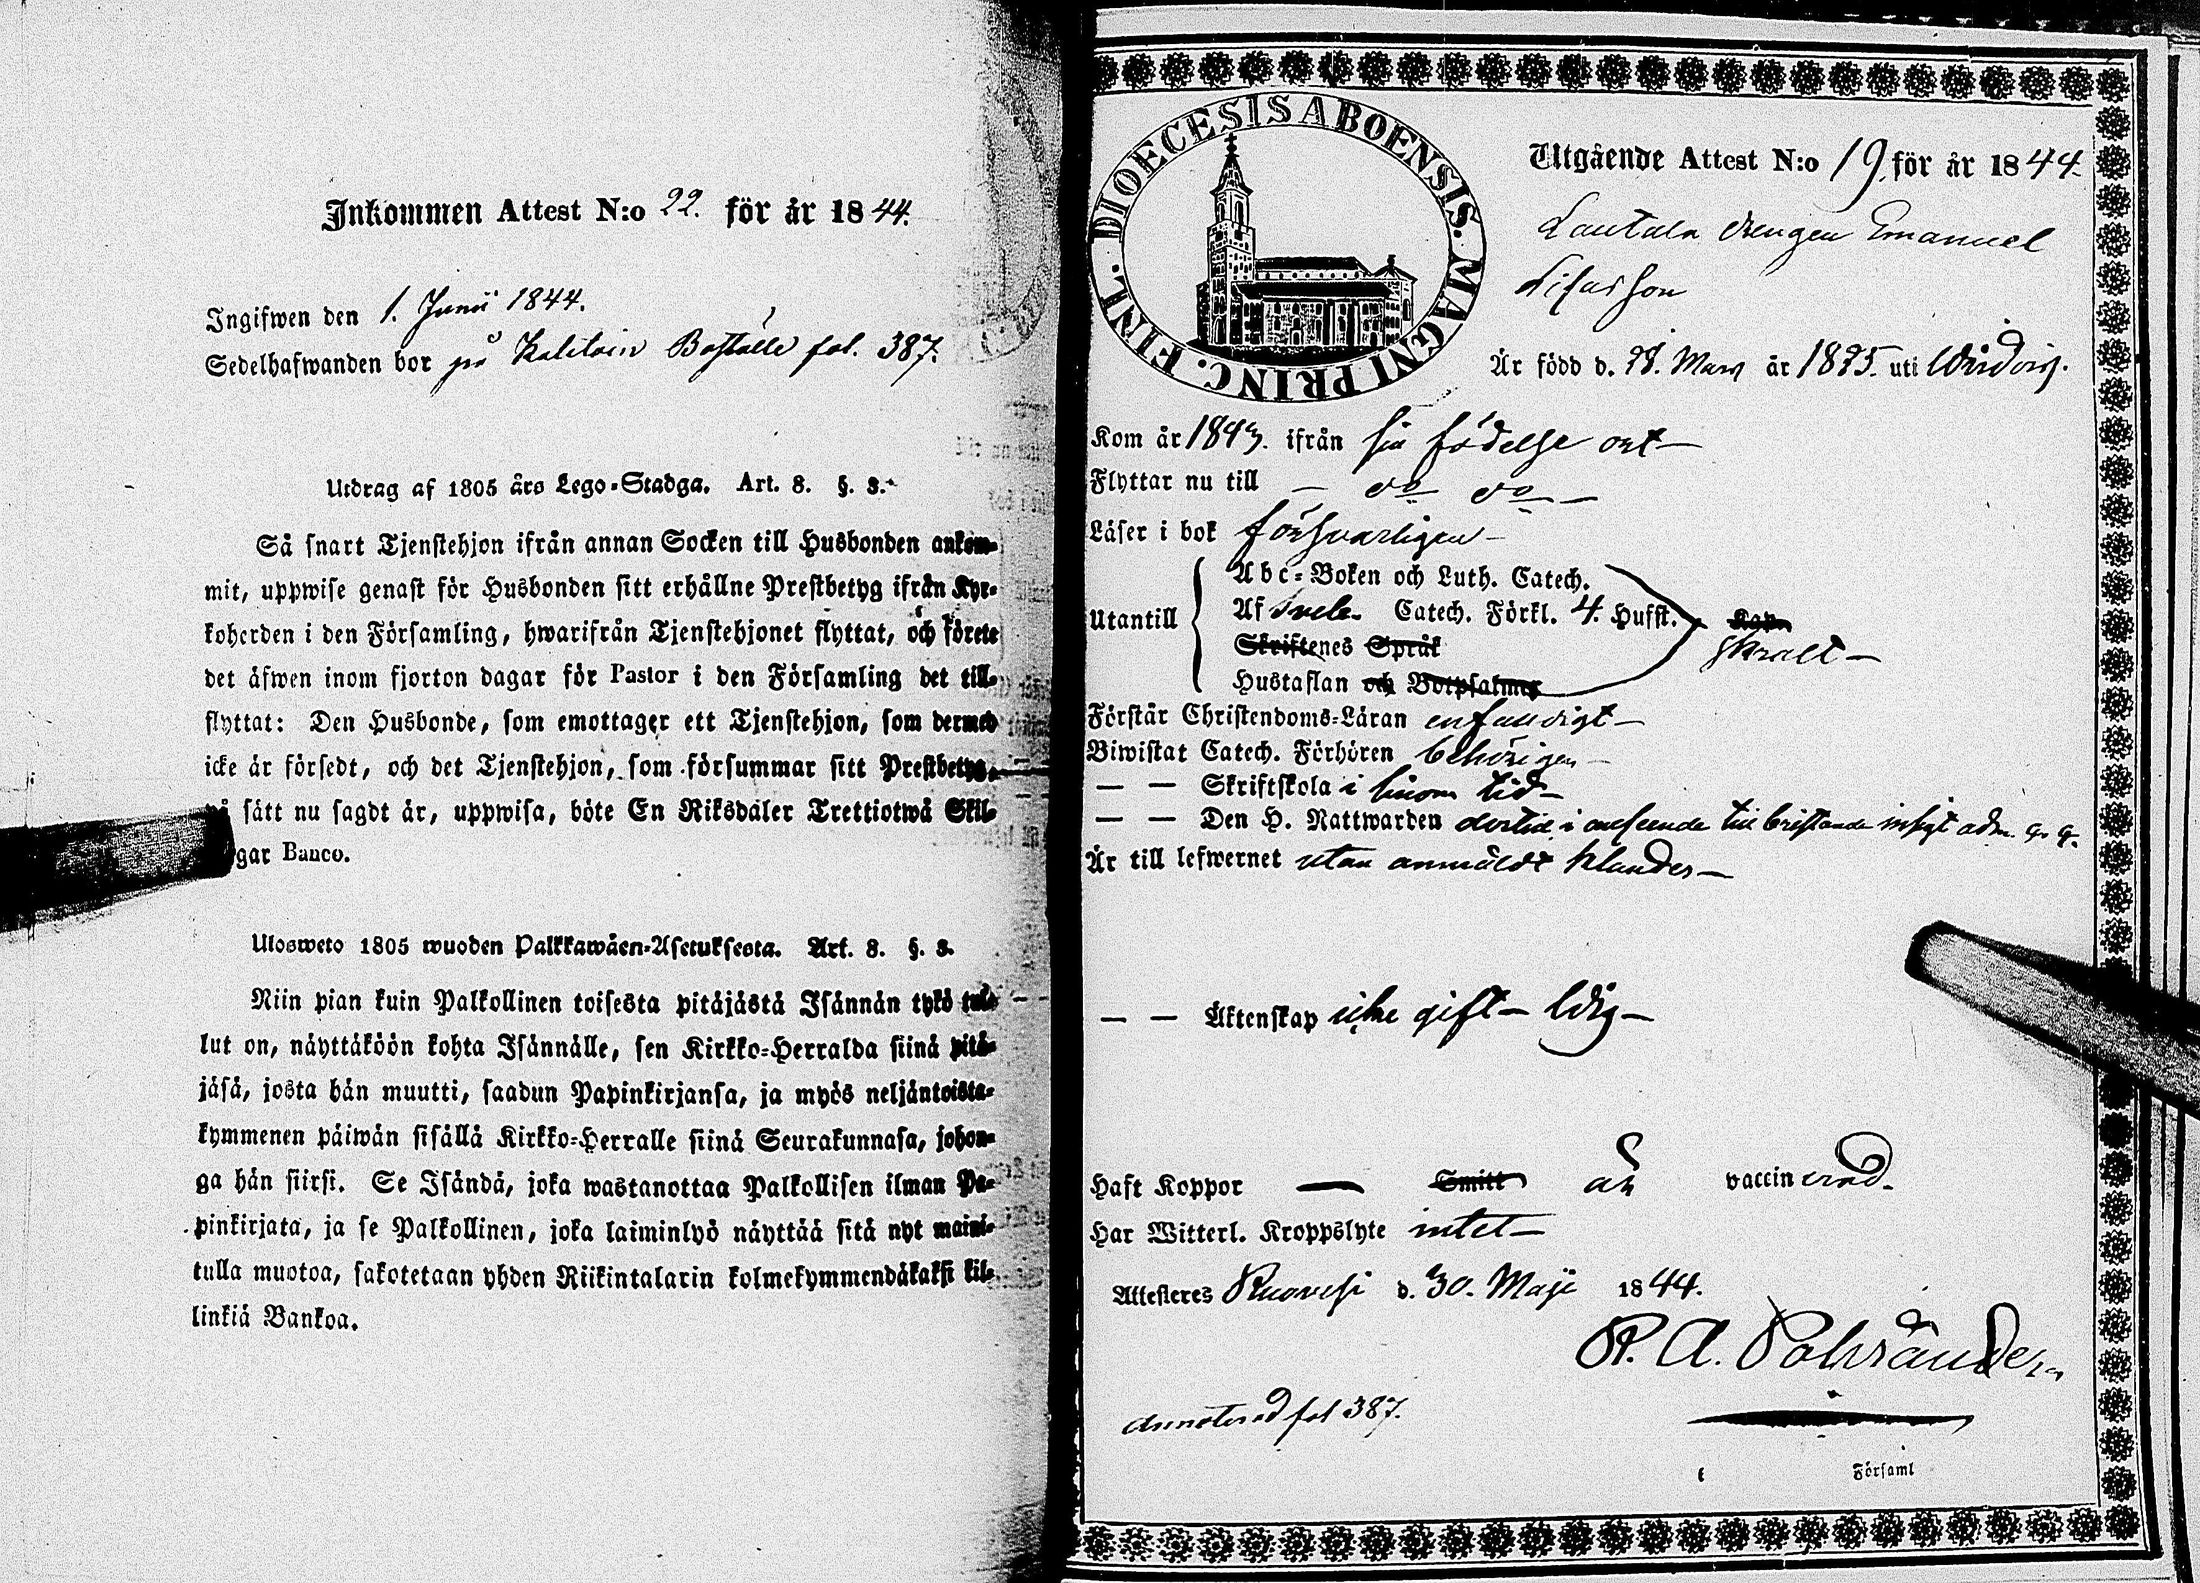 Inkommen Attest N:o 22. för år 1844.
Ingifwen den 1. Junii 1844.
Sedelhafwanden bor på Boställe fol. 387.
Utdrag af 1805 års Lego-Stadga. Art. 8. §. 8.
Så snart Tjenstehjon ifrån annan Socken till Husbonden ankom-
mit, uppwise genast för Husbonden sitt erhållne Prestbetyg ifrån Kyr-
koherden i den Församling, hwarifrån Tjenstehjonet flyttat, och förete
det äfwen inom fjorton dagar för Pastor i den Församling det till-
flyttat: Den Husbonde, som emottager ett Tjenstehjon, som dermed
icke är försedt, och det Tjenstehjon, som försummar sitt Prestbetyg,
på sätt nu sagdt är, uppwisa, böte En Riksdaler Trettiotwå Skil-
gar Banco.
Ulosweto 1805 wuoden Palkkawäen-Asetuksesta. Art. 8. §. 8.
Niin pian kuin Palkollinen toisesta pitäjästä Isännän tykö tul-
lut on, näyttäköön kohta Isännälle, sen Kirkko-Herralda siinä pitä-
jäsä, josta hän muutti, saadun Papinkirjansa, ja myös neljäntoista-
kymmenen päiwän sisällä Kirkko-Herralle siinä Seurakunnasa, johon-
ga hän siirsi. Se Isändä, joka wastanottaa Palkollisen ilman Pa-
pinkirjata, ja se Palkollinen, joka laiminlyö näyttää sitä nyt maini-
tulla muotoa, sakotetaan yhden Riikintalarin kolmekymmendäkaksi kil-
linkiä Bankoa.
DIOECESIS ABOENSIS. MAGNI PRINC. FINL.
Utgående Attest N:o 19 för år 1844.
Lautala drengen Emanuel
Är född d. 28. Mars år 1825. uti
Kom år 1843. ifrån sin födelse ort
Flyttar nu till — do do —
Läser i bok försvarligen
Utantill
Abc-Boken och Luth. Catech.
Af Sveb. Catech. Förkl. 4. Hufst.
Skriftenes Språk
Hustaflan och Botpsalmer
svalt
Förstår Christendoms-Läran enfaldigt
Biwistat Catech. Förhören behörigen
— — Skriftskola i sinom tid
— — Den H. Nattwarden dertid i anseende till bristande insigt adm.
Är till lefwernet utan anmäldt klander
— — Äktenskap icke gift — ledig
Haft Koppor — Smitt är vaccinerad.
Har Witterl. Kroppslyte intet
Attesteres Ruovesi d. 30. Maji 1844.
annoterad fol 387.
Församl